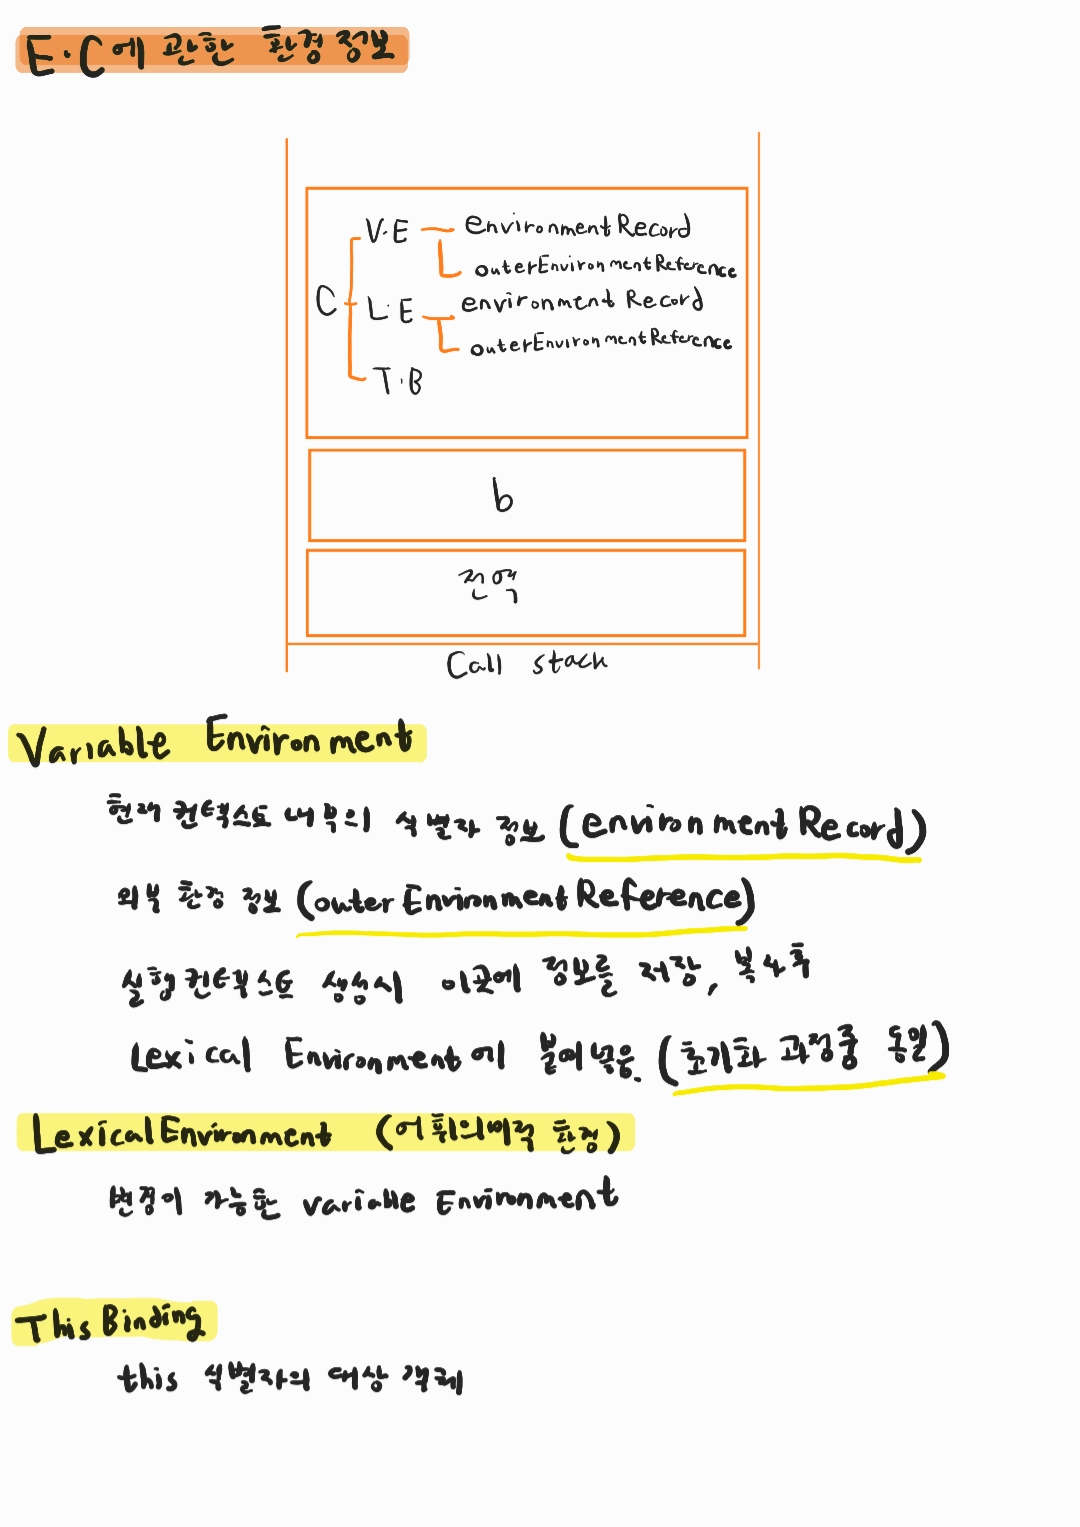 E·C에 관한 환경 정보
V·E environmentRecord
outerEnvironmentReference
C L·E environment Record
outerEnvironmentReference
T·B
b
전역
Call stack
Variable Environment
현재 컨텍스트 내부의 식별자 정보 (environmentRecord)
외부 환경 정보 (outerEnvironmentReference)
실행 컨텍스트 생성시 이곳에 정보를 저장, 복사후
Lexical Environment에 붙여넣음. (초기화 과정중 동일)
LexicalEnvironment (어휘의미적 환경)
변경이 가능한 variable Environment
This Binding
this 식별자의 대상 객체